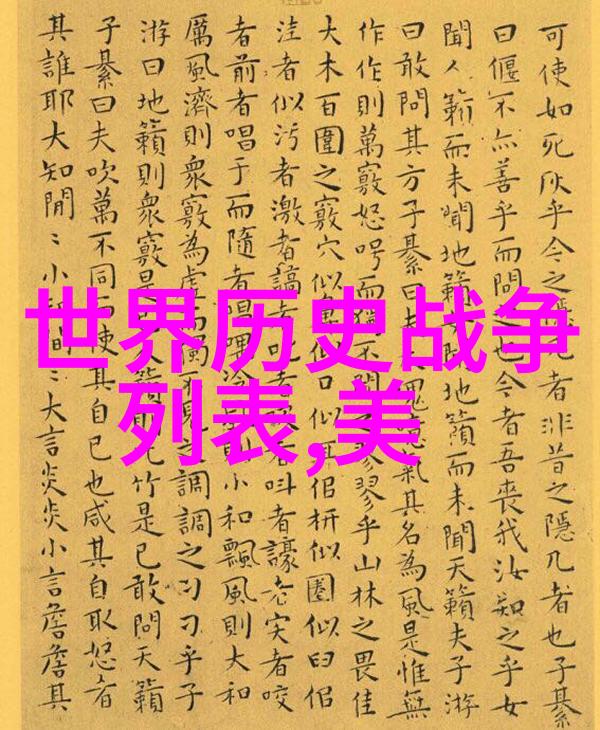 可使如死灰乎今之隱几者非昔之隱几者也子綦
曰偃不亦善乎而問之也今者吾喪我汝知之乎女
聞人籟而未聞地籟聞地籟而未聞天籟夫子游
曰敢問其方子綦曰夫塊氣其名為風是惟無
作作則萬竅怒呺而獨不聞翏乎山林之畏佳
大木百圍之竅穴似鼻似口似耳佀枅似圈似臼佀
洼者似污者激者謞者叱者者叫者譹者宎者咬
者前者唱于而隨者唱喁泠則小和飄風則大和
厲風濟則衆竅為虛而獨不見之調調之刁刁乎子
游曰地籟則衆竅是人籟則比竹是已敢問天籟
子綦曰夫吹萬不同而使其自已也咸其自取怒者
其誰耶大知閒〻小知間〻大言炎炎小言詹詹其
世界历史战争
列表,美